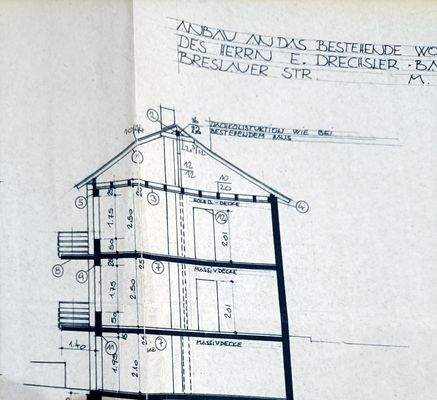 ANBAU AN DAS BESTEHENDE WO
DES HERRN E. DRECHSLER · BA
BRESLAUER STR M.
2
DACHKONSTUKTION WIE BEI
BESTEHENDEM HAUS
10/14
1
12
12
5
3
10
20
4
KOKS-DECKE
12
1.75
2.50
2.01
50
25
8
9
7
MASSIVDECKE
1.75
2.50
2.01
50
25
1.40
11
7
MASSIVDECKE
1.75
2.10